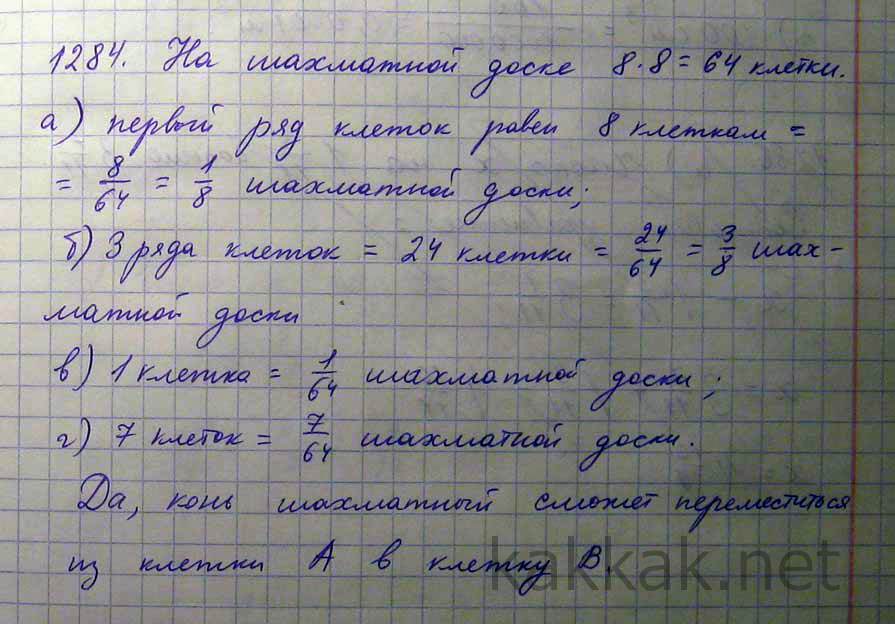 1284. На шахматной доске 8·8 = 64 клетки.
а) первый ряд клеток равен 8 клеткам =
= 8/64 = 1/8 шахматной доски;
б) 3 ряда клеток = 24 клетки = 24/64 = 3/8 шах-
матной доски
в) 1 клетка = 1/64 шахматной доски;
г) 7 клеток = 7/64 шахматной доски.
Да, конь шахматный сможет переместиться
из клетки А в клетку В.
kakkak.net